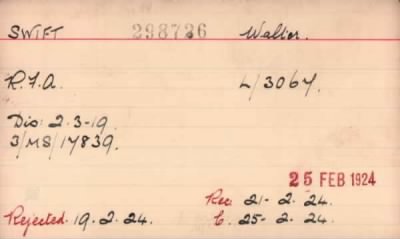 SWIFT 298726 Walter.
R.F.A. L/3067.
Dis: 2.3-19.
3/MS/17839.
25 FEB 1924
Rec. 21- 2. 24.
Rejected. 19.2.24. C. 25- 2. 24.